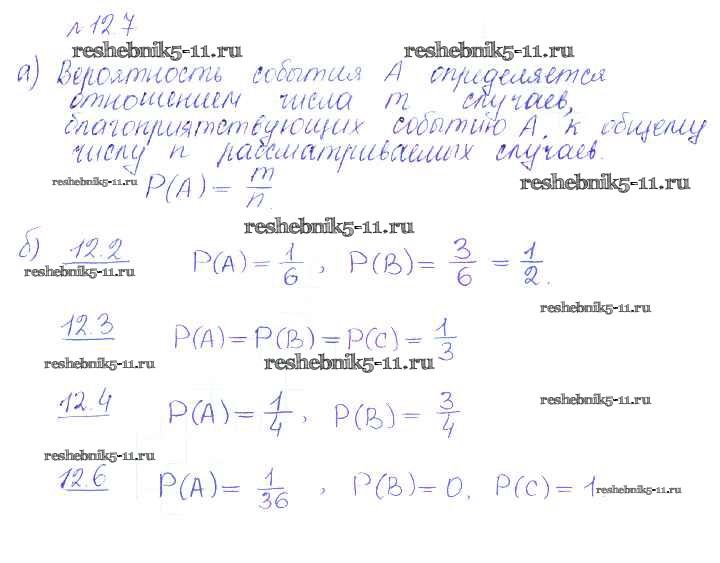 № 12.7
reshebnik5-11.ru reshebnik5-11.ru
а) Вероятность события А определяется
отношением числа m случаев,
благоприятствующих событию А, к общему
числу n рассматриваемых случаев.
reshebnik5-11.ru P(A) = m/n. reshebnik5-11.ru
reshebnik5-11.ru
б) 12.2 P(A) = 1/6, P(B) = 3/6 = 1/2.
reshebnik5-11.ru
reshebnik5-11.ru
12.3 P(A) = P(B) = P(C) = 1/3
reshebnik5-11.ru reshebnik5-11.ru
12.4 P(A) = 1/4, P(B) = 3/4
reshebnik5-11.ru
reshebnik5-11.ru
12.6 P(A) = 1/36, P(B) = 0, P(C) = 1.
reshebnik5-11.ru